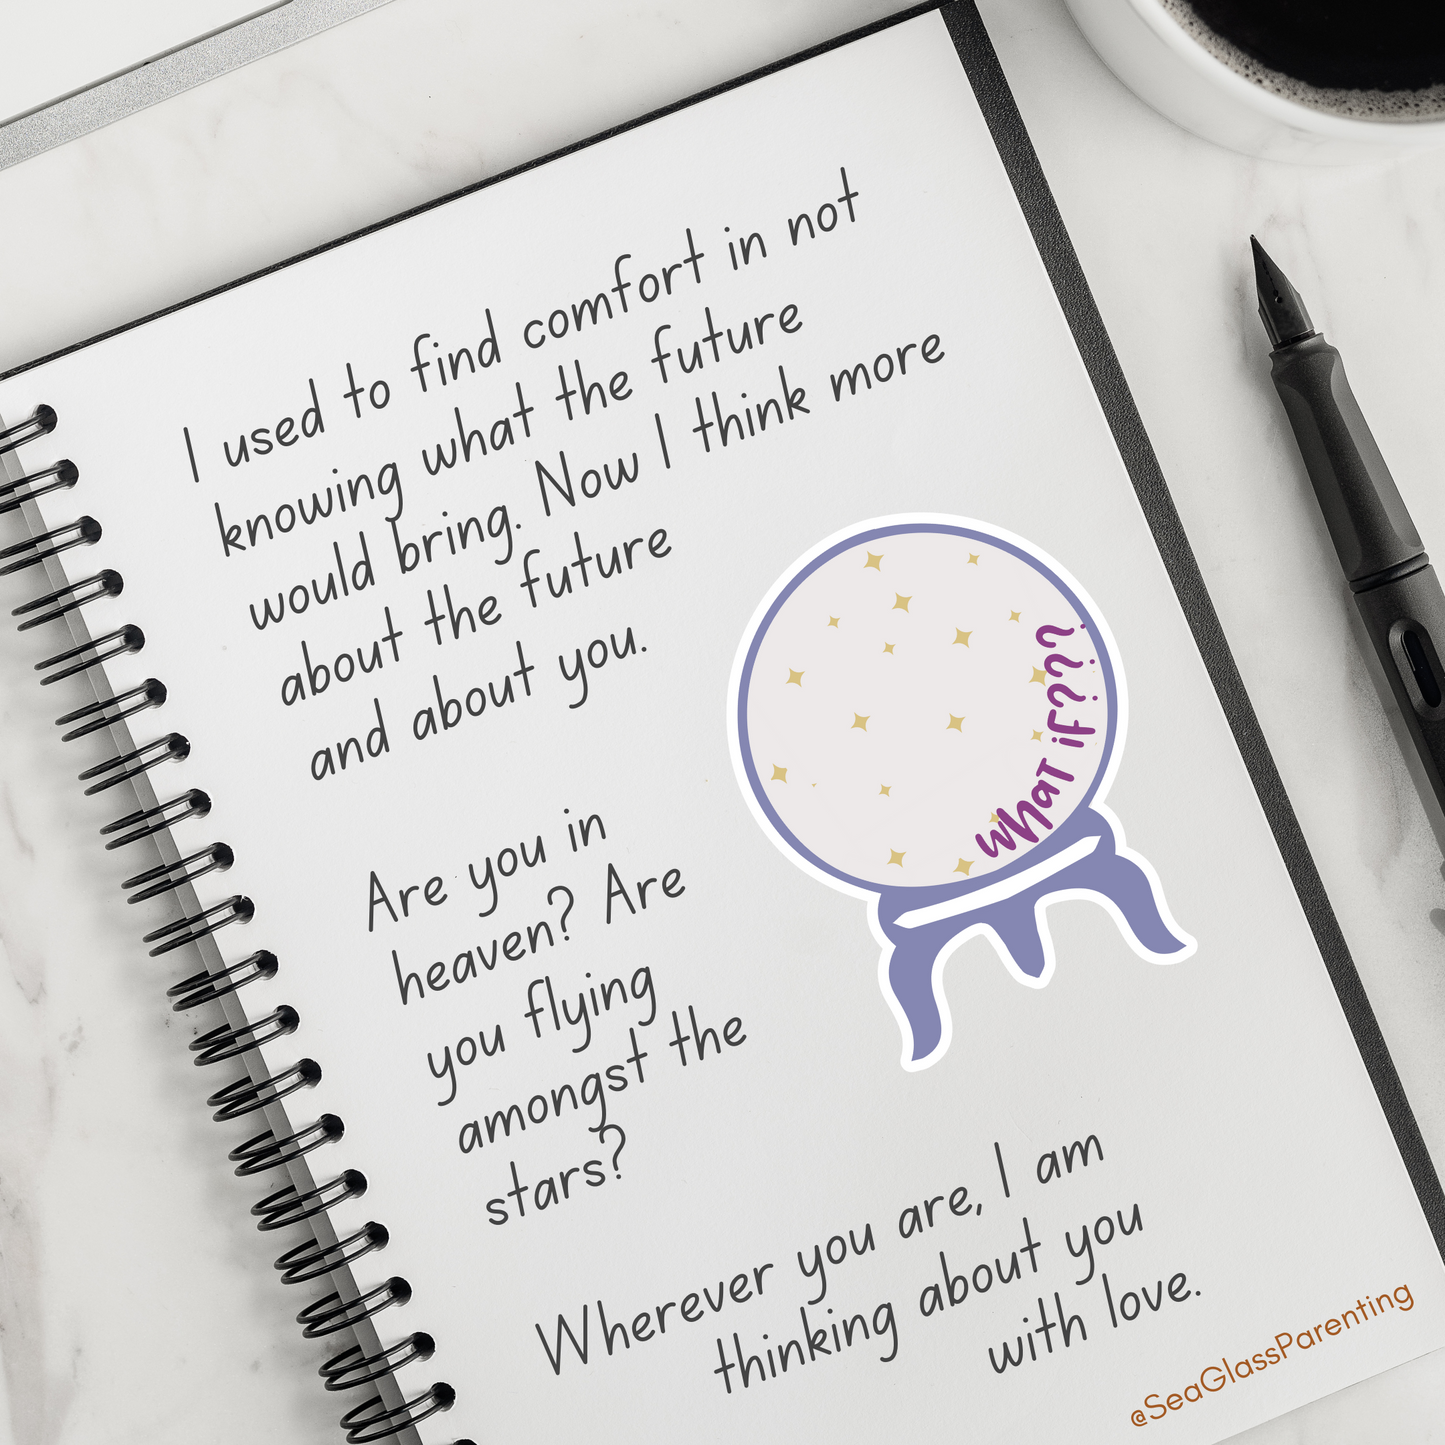 I used to find comfort in not
knowing what the future
would bring. Now I think more
about the future
and about you.
what if???
Are you in
heaven? Are
you flying
amongst the
stars?
Wherever you are, I am
thinking about you
with love.
@SeaGlassParenting